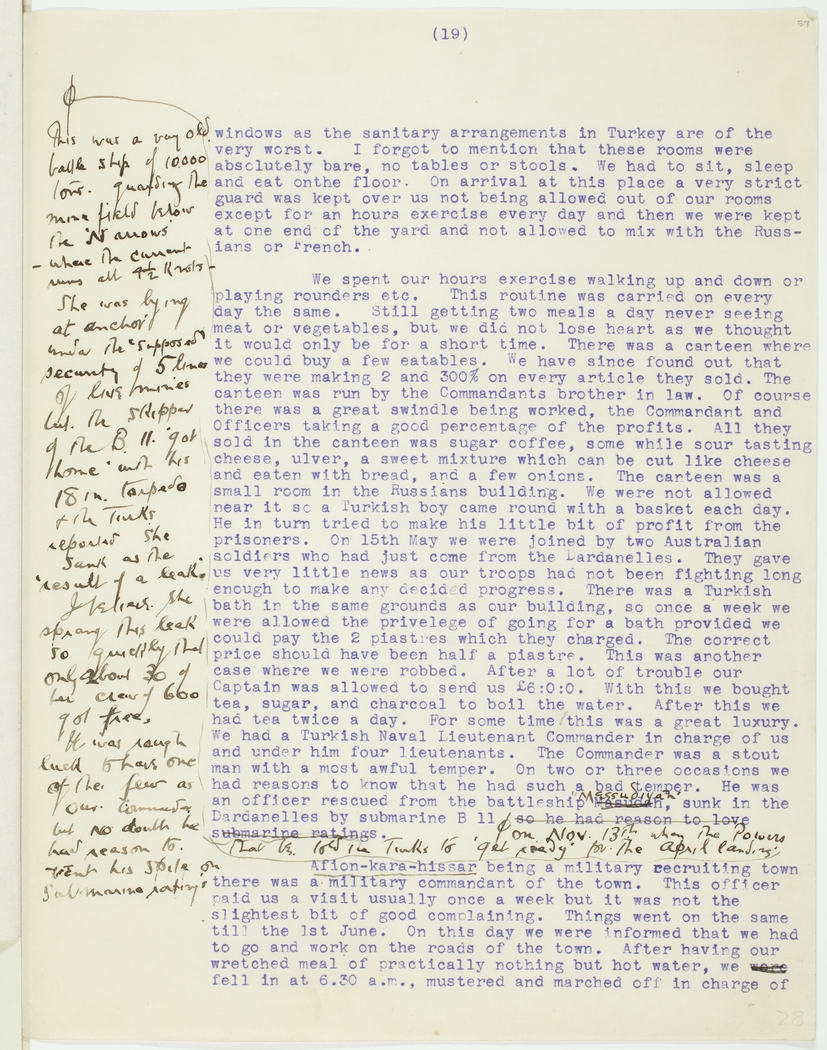 (19)
57
windows as the sanitary arrangements in Turkey are of the
very worst. I forgot to mention that these rooms were
absolutely bare, no tables or stools. We had to sit, sleep
and eat onthe floor. On arrival at this place a very strict
guard was kept over us not being allowed out of our rooms
except for an hours exercise every day and then we were kept
at one end of the yard and not allowed to mix with the Russ-
ians or French.
We spent our hours exercise walking up and down or
playing rounders etc. This routine was carried on every
day the same. Still getting two meals a day never seeing
meat or vegetables, but we did not lose heart as we thought
it would only be for a short time. There was a canteen where
we could buy a few eatables. We have since found out that
they were making 2 and 300% on every article they sold. The
canteen was run by the Commandants brother in law. Of course
there was a great swindle being worked, the Commandant and
Officers taking a good percentage of the profits. All they
sold in the canteen was sugar coffee, some while sour tasting
cheese, ulver, a sweet mixture which can be cut like cheese
and eaten with bread, and a few onions. The canteen was a
small room in the Russians building. We were not allowed
near it so a Turkish boy came round with a basket each day.
He in turn tried to make his little bit of profit from the
prisoners. On 15th May we were joined by two Australian
soldiers who had just come from the Dardanelles. They gave
us very little news as our troops had not been fighting long
enough to make any decided progress. There was a Turkish
bath in the same grounds as our building, so once a week we
were allowed the privelege of going for a bath provided we
could pay the 2 piastres which they charged. The correct
price should have been half a piastre. This was another
case where we were robbed. After a lot of trouble our
Captain was allowed to send us £6:0:0. With this we bought
tea, sugar, and charcoal to boil the water. After this we
had tea twice a day. For some time this was a great luxury.
We had a Turkish Naval Lieutenant Commander in charge of us
and under him four lieutenants. The Commander was a stout
man with a most awful temper. On two or three occasions we
had reasons to know that he had such a bad temper. He was
"Massudiyah"
an officer rescued from the battleship, sunk in the
Dardanelles by submarine B 11 so he had reason to love
submarine ratings. on Nov. 13th when the Powers
that be told the Turks to 'get ready' for the April landing.
Afion-kara-hissar being a military recruiting town
there was a military commandant of the town. This officer
paid us a visit usually once a week but it was not the
slightest bit of good complaining. Things went on the same
till the 1st June. On this day we were informed that we had
to go and work on the roads of the town. After having our
wretched meal of practically nothing but hot water, we were
fell in at 6.30 a.m., mustered and marched off in charge of
This was a very old
battle ship of 10,000
tons. guarding the
mine field below
the 'Narrows'
- where the current
runs at 4½ Knots -
She was lying
at anchor
under the "supposed"
security of 5 lines
of live mines
but the skipper
of the B.11. 'got
home' with his
18 in. torpedo
& the Turks
reported she
sank as the
'result of a leak'.
I believe she
sprang this leak
so quickly that
only about 30 of
her crew of 600
got free.
It was rough
luck to have one
of the few as
our Commander
but no doubt he
had reason to
vent his spite on
submarine ratings
28